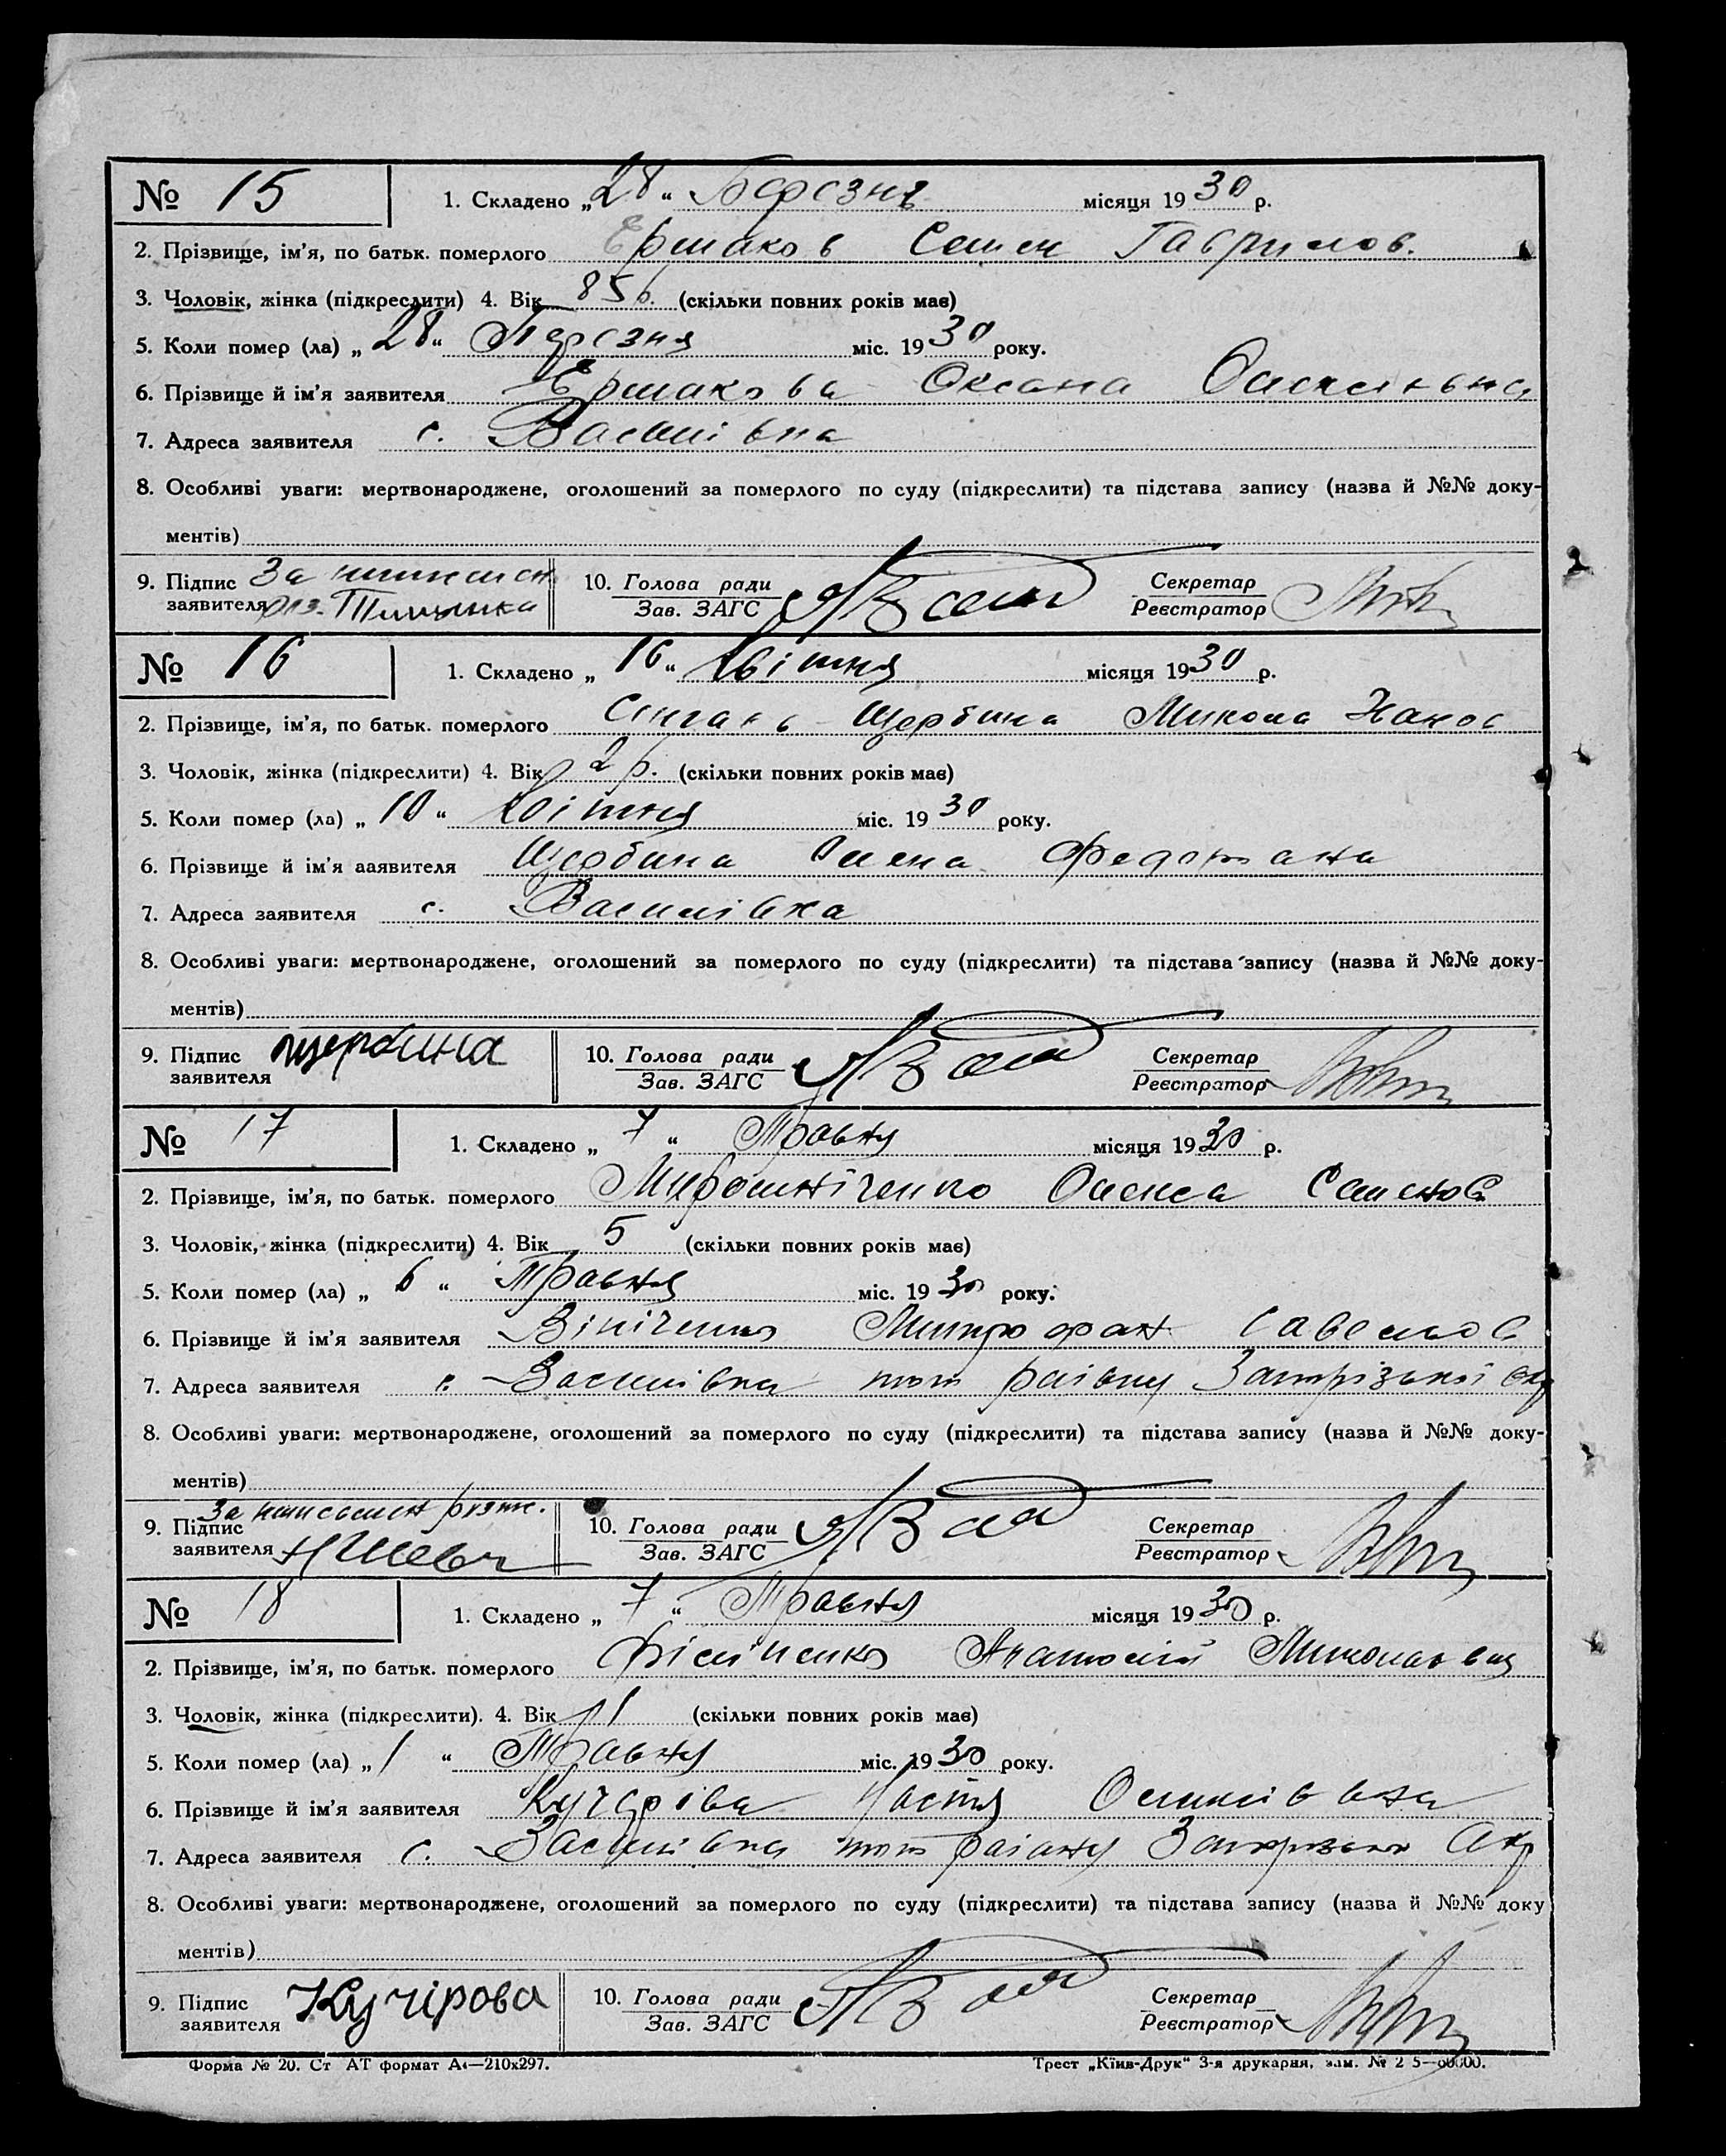 № 15 1. Складено „28“ Березня місяця 1930 р.
2. Прізвище, ім'я, по батьк. померлого Єрмаков Семен Гаврилов.
3. Чоловік, жінка (підкреслити) 4. Вік 85 р. (скільки повних років має)
5. Коли помер (ла) „28“ Березня міс. 1930 року.
6. Прізвище й ім'я заявителя Єрмакова Оксана
7. Адреса заявителя с. Василівка
8. Особливі уваги: мертвонароджене, оголошений за померлого по суду (підкреслити) та підстава запису (назва й №№ доку-
ментів)
9. Підпис заявителя За 10. Голова ради Зав. ЗАГС Секретар Реєстратор
№ 16 1. Складено „16“ Квітня місяця 1930 р.
2. Прізвище, ім'я, по батьк. померлого Щербина Микола
3. Чоловік, жінка (підкреслити) 4. Вік 2 р. (скільки повних років має)
5. Коли помер (ла) „10“ Квітня міс. 1930 року.
6. Прізвище й ім'я ааявителя Щербина Олена
7. Адреса заявителя с. Василівка
8. Особливі уваги: мертвонароджене, оголошений за померлого по суду (підкреслити) та підстава запису (назва й №№ доку-
ментів)
9. Підпис заявителя щербина 10. Голова ради Зав. ЗАГС Секретар Реєстратор
№ 17 1. Складено „7“ Травня місяця 1930 р.
2. Прізвище, ім'я, по батьк. померлого Мирошніченко Олекса Семенов
3. Чоловік, жінка (підкреслити) 4. Вік 5 (скільки повних років має)
5. Коли помер (ла) „6“ Травня міс. 1930 року.
6. Прізвище й ім'я заявителя Вініченко Митрофан
7. Адреса заявителя с. Василівка
8. Особливі уваги: мертвонароджене, оголошений за померлого по суду (підкреслити) та підстава запису (назва й №№ доку-
ментів)
9. Підпис заявителя За 10. Голова ради Зав. ЗАГС Секретар Реєстратор
№ 18 1. Складено „7“ Травня місяця 1930 р.
2. Прізвище, ім'я, по батьк. померлого Анатолій
3. Чоловік, жінка (підкреслити). 4. Вік 1 (скільки повних років має)
5. Коли помер (ла) „1“ Травня міс. 1930 року.
6. Прізвище й ім'я заявителя Кучерова Настя
7. Адреса заявителя с. Василівка
8. Особливі уваги: мертвонароджене, оголошений за померлого по суду (підкреслити) та підстава запису (назва й №№ доку
ментів)
9. Підпис заявителя Кучірова 10. Голова ради Зав. ЗАГС Секретар Реєстратор
Форма № 20. Ст АТ формат А4—210х297. Трест „Київ-Друк“ 3-я друкарня,